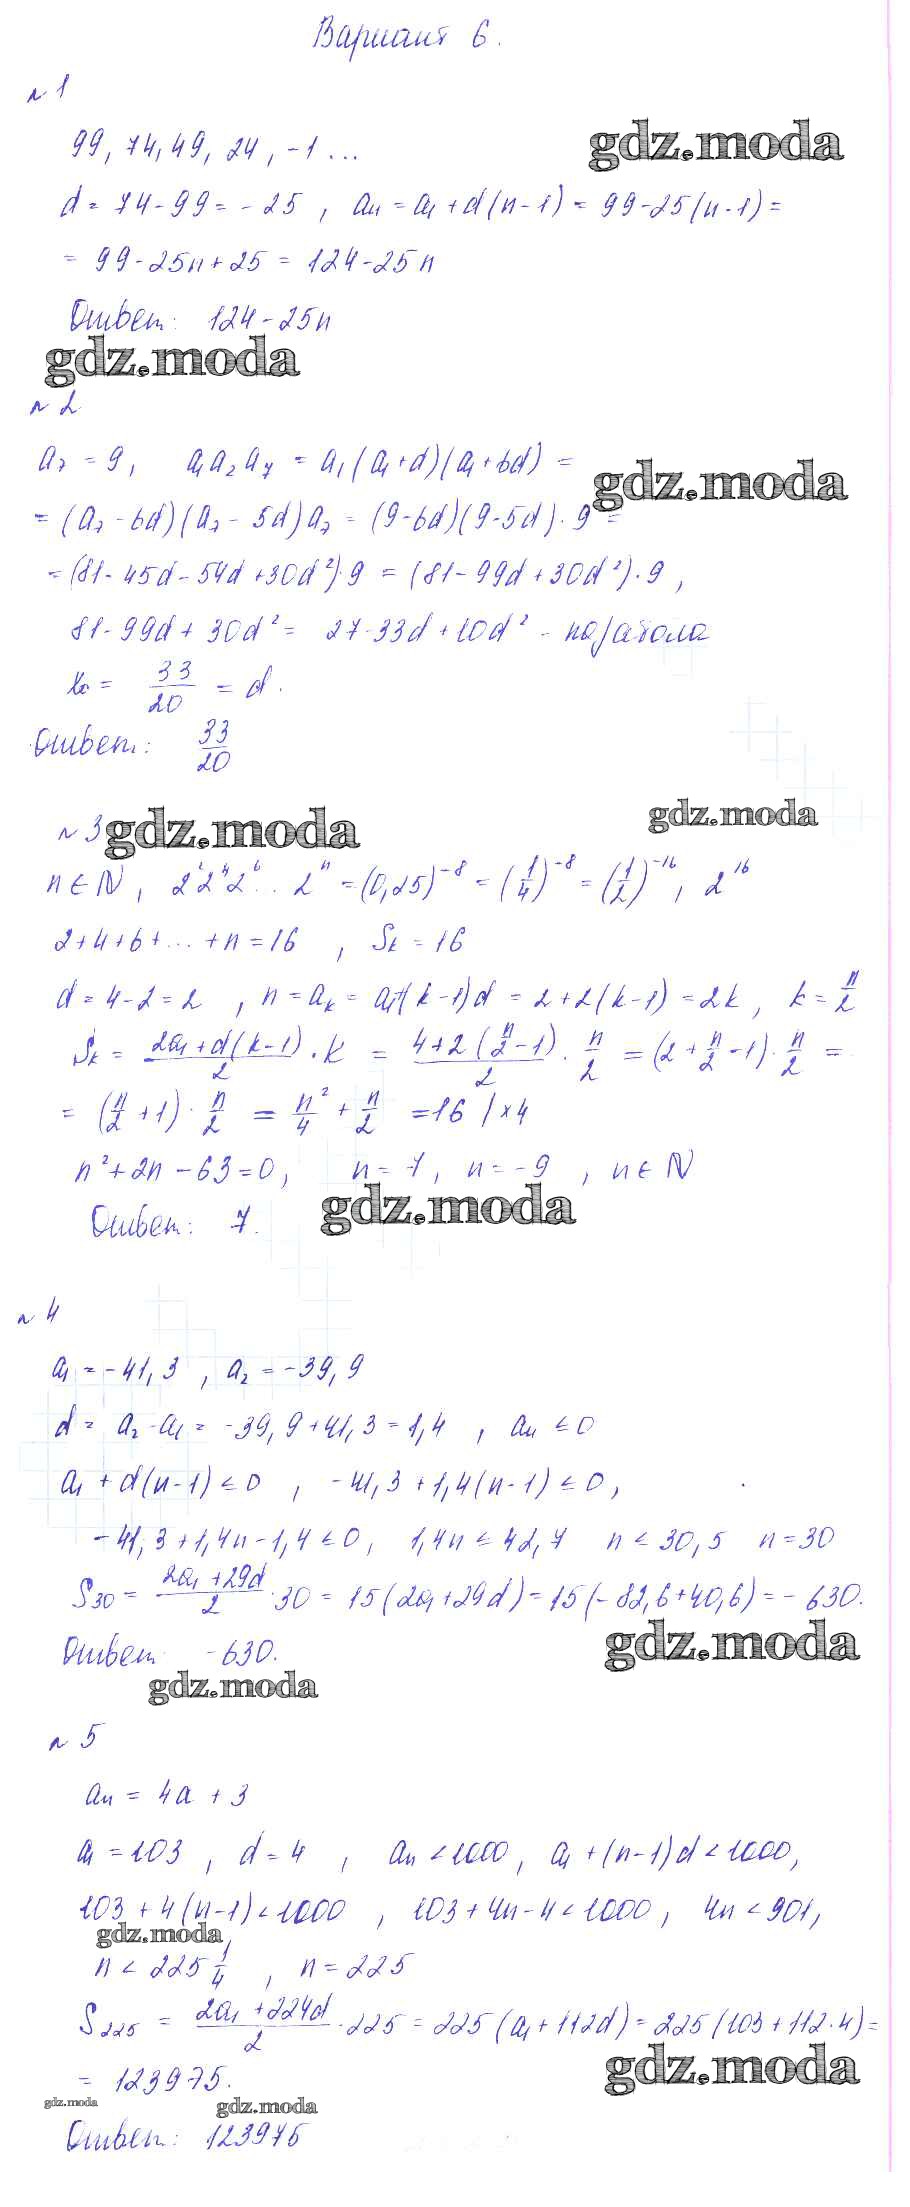 Вариант 6.
№ 1
99, 74, 49, 24, -1 ...
gdz.moda
d = 74 - 99 = - 25 , aₙ = a₁ + d(n - 1) = 99 - 25(n - 1) =
= 99 - 25n + 25 = 124 - 25n
Ответ: 124 - 25n
gdz.moda
№ 2
a₇ = 9, a₁a₂a₇ = a₁(a₁+d)(a₁+6d) =
gdz.moda
= (a₇ - 6d)(a₇ - 5d)a₇ = (9-6d)(9-5d)·9 =
= (81 - 45d - 54d + 30d²)·9 = (81 - 99d + 30d²)·9 ,
81 - 99d + 30d² = 27-33d + 10d² -
x₀ = 33/20 = d.
Ответ: 33/20
№ 3
gdz.moda
gdz.moda
n ∈ N , 2² 2⁴ 2⁶ ... 2ⁿ = (0,25)⁻⁸ = (1/4)⁻⁸ = (1/2)⁻¹⁶ , 2¹⁶
2+4+6+ ... +n = 16 , Sₖ = 16
d = 4-2 = 2 , n = aₖ = a₁+(k-1)d = 2+2(k-1) = 2k , k = n/2
Sₖ = (2a₁+d(k-1))/2 · k = (4+2(n/2-1))/2 · n/2 = (2+n/2-1)·n/2 =
= (n/2 +1)· n/2 = n²/4 + n/2 = 16 / ×4
n²+2n-63=0, n = 7, n = -9 , n ∈ N
gdz.moda
Ответ: 7.
№ 4
a₁ = -41,3 , a₂ = -39,9
d = a₂-a₁ = -39,9+41,3 = 1,4 , aₙ ≤ 0
a₁ + d(n-1) ≤ 0 , -41,3 + 1,4(n-1) ≤ 0 ,
-41,3+1,4n-1,4 ≤ 0, 1,4n ≤ 42,7 n ≤ 30,5 n = 30
S₃₀ = (2a₁+29d)/2 ·30 = 15(2a₁+29d) = 15(-82,6+40,6) = -630.
gdz.moda
Ответ -630.
gdz.moda
№ 5
aₙ = 4a + 3
a₁ = 103 , d = 4 , aₙ < 1000, a₁+(n-1)d < 1000,
103+4(n-1) < 1000 , 103+4n-4 < 1000, 4n < 901,
gdz.moda
n < 225 1/4 , n = 225
S₂₂₅ = (2a₁+224d)/2 ·225 = 225(a₁+112d) = 225(103+112·4) =
gdz.moda
= 123975.
gdz.moda
gdz.moda
Ответ: 123975